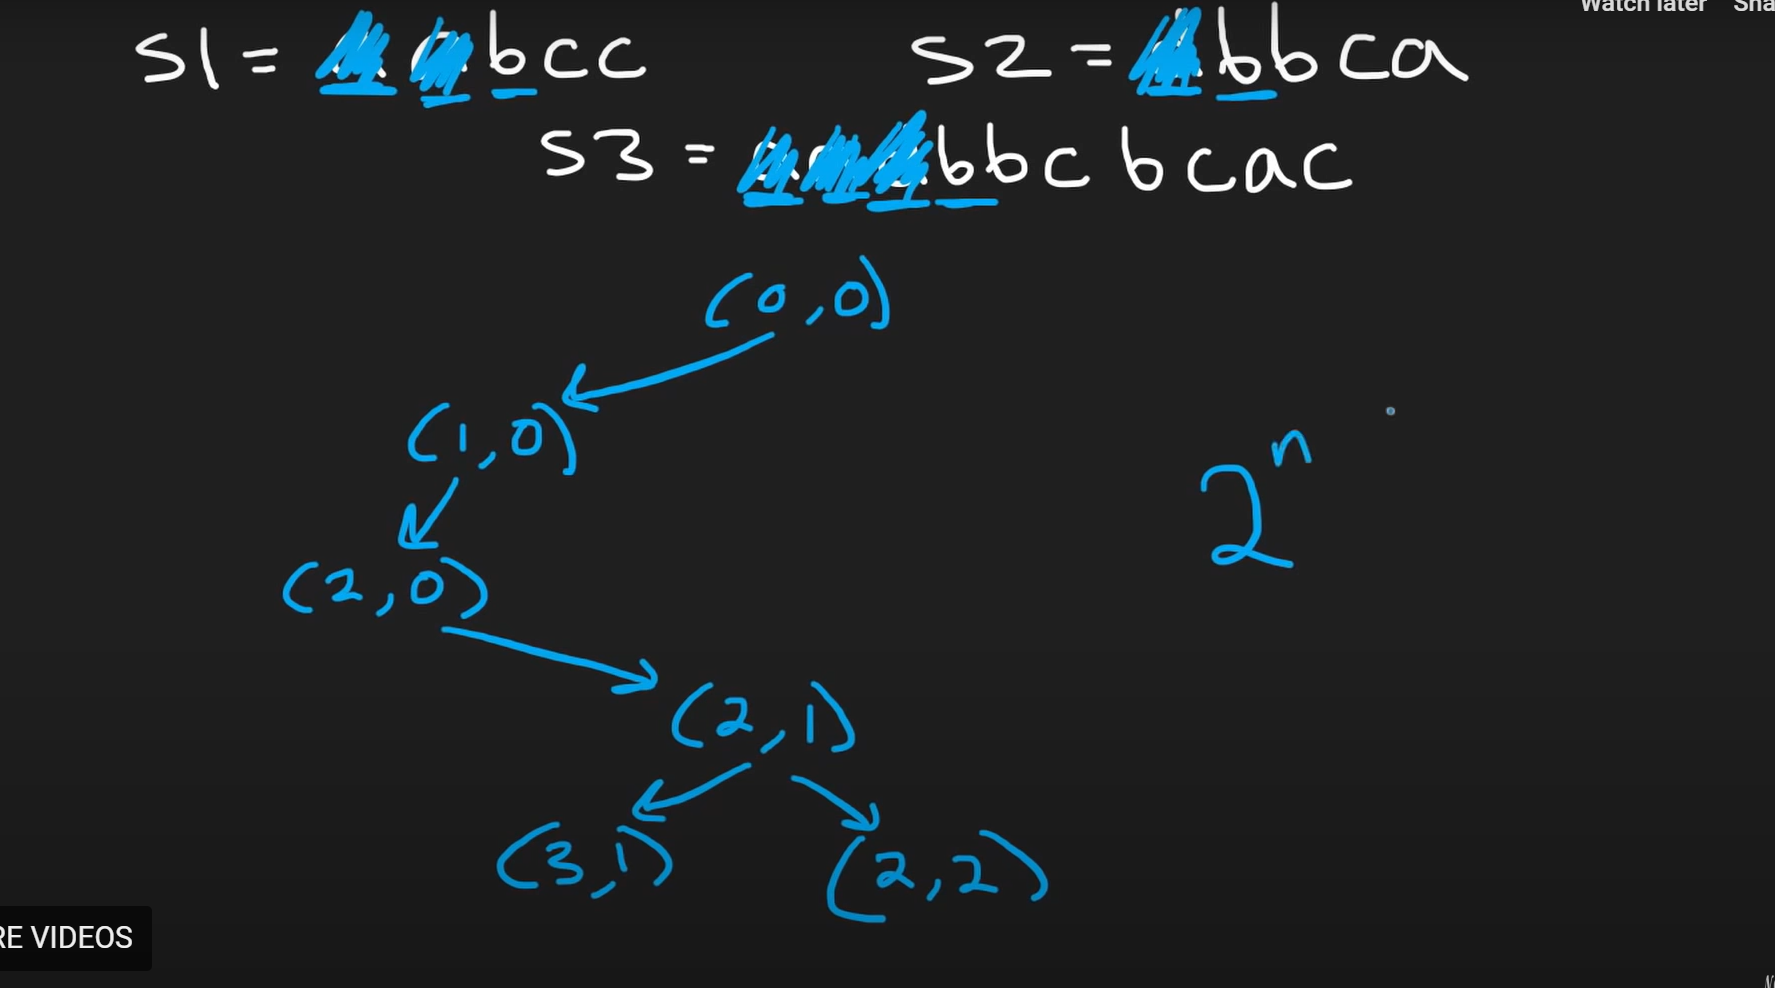 Watch later Sha
s1 = bcc
s2 = bbca
s3 = bbcbcac
(0,0)
(1,0)
2^n
(2,0)
(2,1)
(3,1)
(2,2)
RE VIDEOS